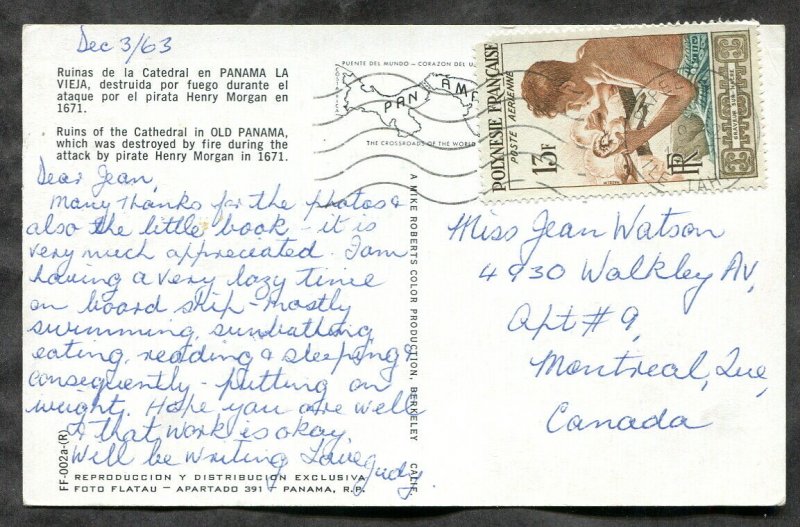 Dec 3/63
Ruinas de la Catedral en PANAMA LA
VIEJA, destruida por fuego durante el
ataque por el pirata Henry Morgan en
1671.
Ruins of the Cathedral in OLD PANAMA,
which was destroyed by fire during the
attack by pirate Henry Morgan in 1671.
Dear Jean,
Many thanks for the photos &
also the little book - it is
very much appreciated. I am
having a very lazy time
on board ship - mostly
swimming, sunbathing,
eating, reading & sleeping &
consequently - putting on
weight. Hope you are well
& that work is okay.
Will be writing Love Judy.
FF-002a-(R)
REPRODUCCION Y DISTRIBUCION EXCLUSIVA
FOTO FLATAU — APARTADO 391 — PANAMA, R.P.
PUENTE DEL MUNDO — CORAZON DEL
PAN AME
THE CROSSROADS OF THE WORLD
A MIKE ROBERTS COLOR PRODUCTION, BERKELEY CALIF.
POLYNÉSIE FRANÇAISE
POSTE AÉRIENNE
13F
RF
Miss Jean Watson
4930 Walkley Av,
Apt # 9,
Montreal, Que,
Canada